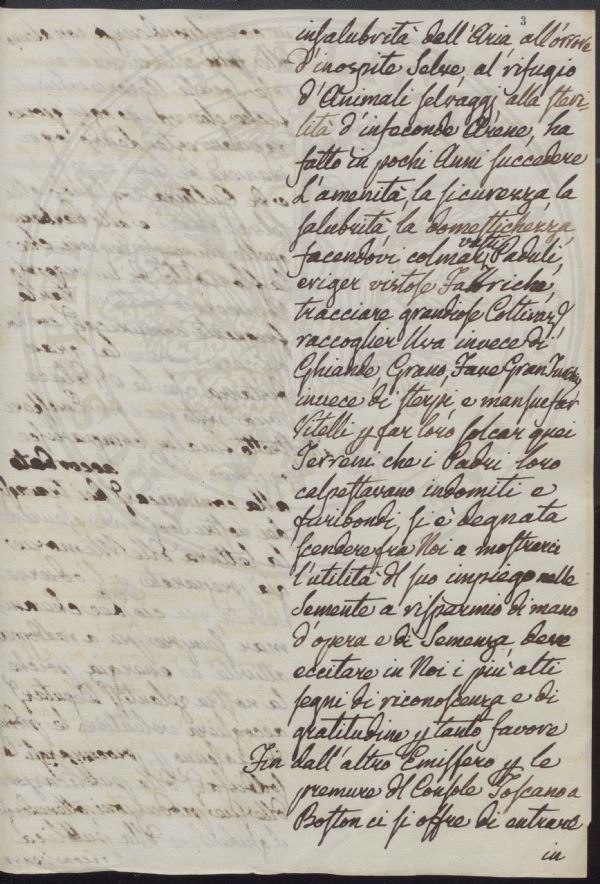 3
insalubrità dell'Aria all'orrore
d'inospite Selve, al rifugio
d'Animali selvaggi alla steri-
lità d'infeconde Arene, ha
fatto in pochi Anni succedere
L'amenità, la sicurezza, la
salubrità, la domestichezza,
facendovi colmar vasti Paduli,
eriger vistose Fabbriche,
tracciare grandiose
raccoglier Uva invece di
Ghiande, Grano, Fave Gran
invece di sterpi, e mansuefar
Vitelli p far loro solcar quei
Terreni che i Padri loro
calpestavano indomiti e
furibondi, si è degnata
scendere fra Noi a mostrarci
l'utilità del suo impiego nelle
Semente a risparmio di mano
d'opera e di Semenza deve
eccitare in Noi i più alti
segni di riconoscenza e di
gratitudine p tanto favore
Fin dall'altro Emissfero p le
premure del Console Toscano a
Boston ci si offre di entrare
in